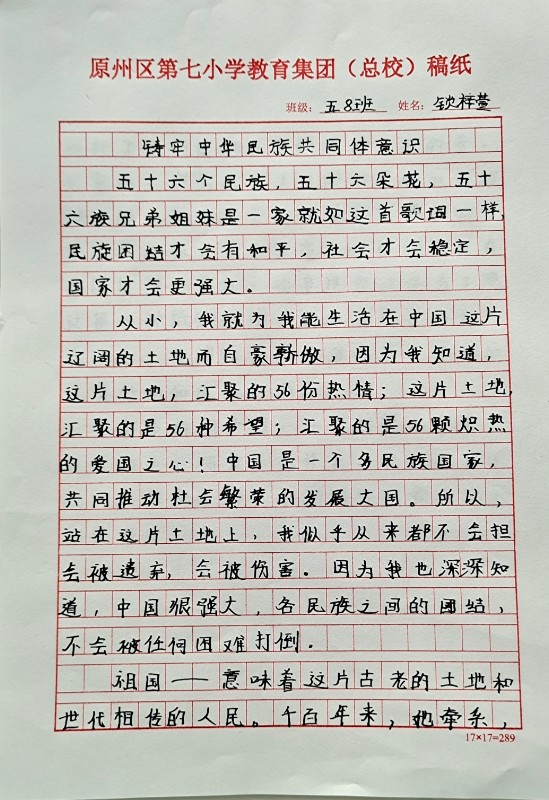 原州区第七小学教育集团（总校）稿纸
班级：五8班 姓名：梓萱
铸牢中华民族共同体意识
五十六个民族，五十六朵花，五十
六族兄弟姐妹是一家就如这首歌词一样，
民族团结才会有和平，社会才会稳定，
国家才会更强大。
从小，我就为我能生活在中国这片
辽阔的土地而自豪骄傲，因为我知道，
这片土地，汇聚的56份热情；这片土地，
汇聚的是56种希望；汇聚的是56颗炽热
的爱国之心！中国是一个多民族国家，
共同推动社会繁荣的发展大国。所以，
站在这片土地上，我似乎从来都不会担
会被遗弃，会被伤害。因为我也深深知
道，中国狠强大，各民族之间的团结，
不会被任何困难打倒。
祖国——意味着这片古老的土地和
世代相传的人民。千百年来，她牵系，
17×17=289